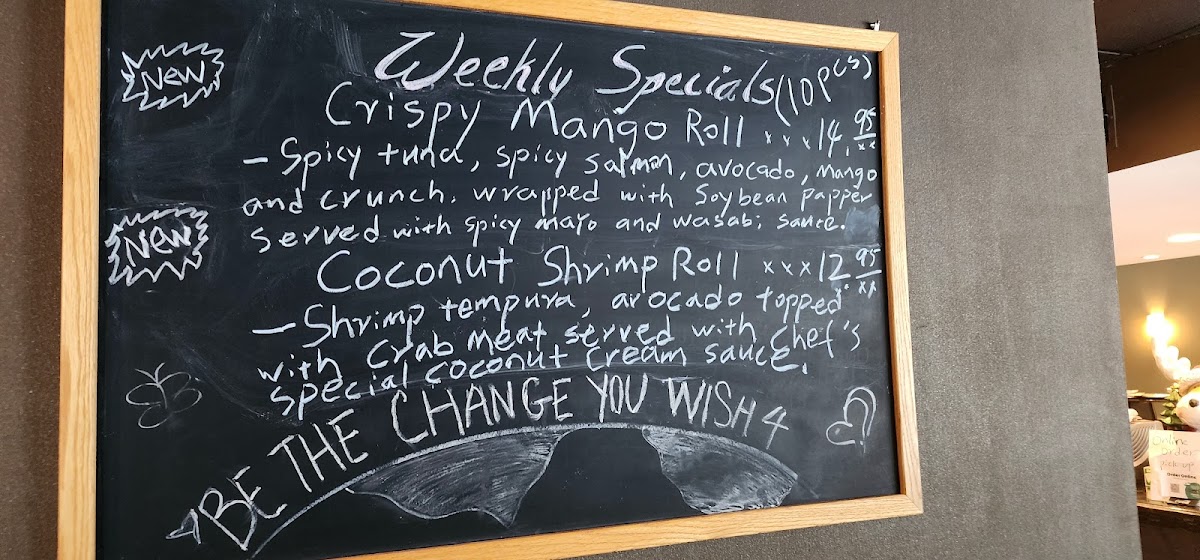 New
Weekly Specials (10 pcs)
Crispy Mango Roll xxx 14.95
- Spicy tuna, spicy salmon, avocado, mango
and crunch. wrapped with Soybean papper
served with spicy mayo and wasabi sauce.
New
Coconut Shrimp Roll xxx 12.95
- Shrimp tempura, avocado topped
with crab meat served with chef's
special coconut cream sauce.
BE THE CHANGE YOU WISH 4
Online
order
pick-up